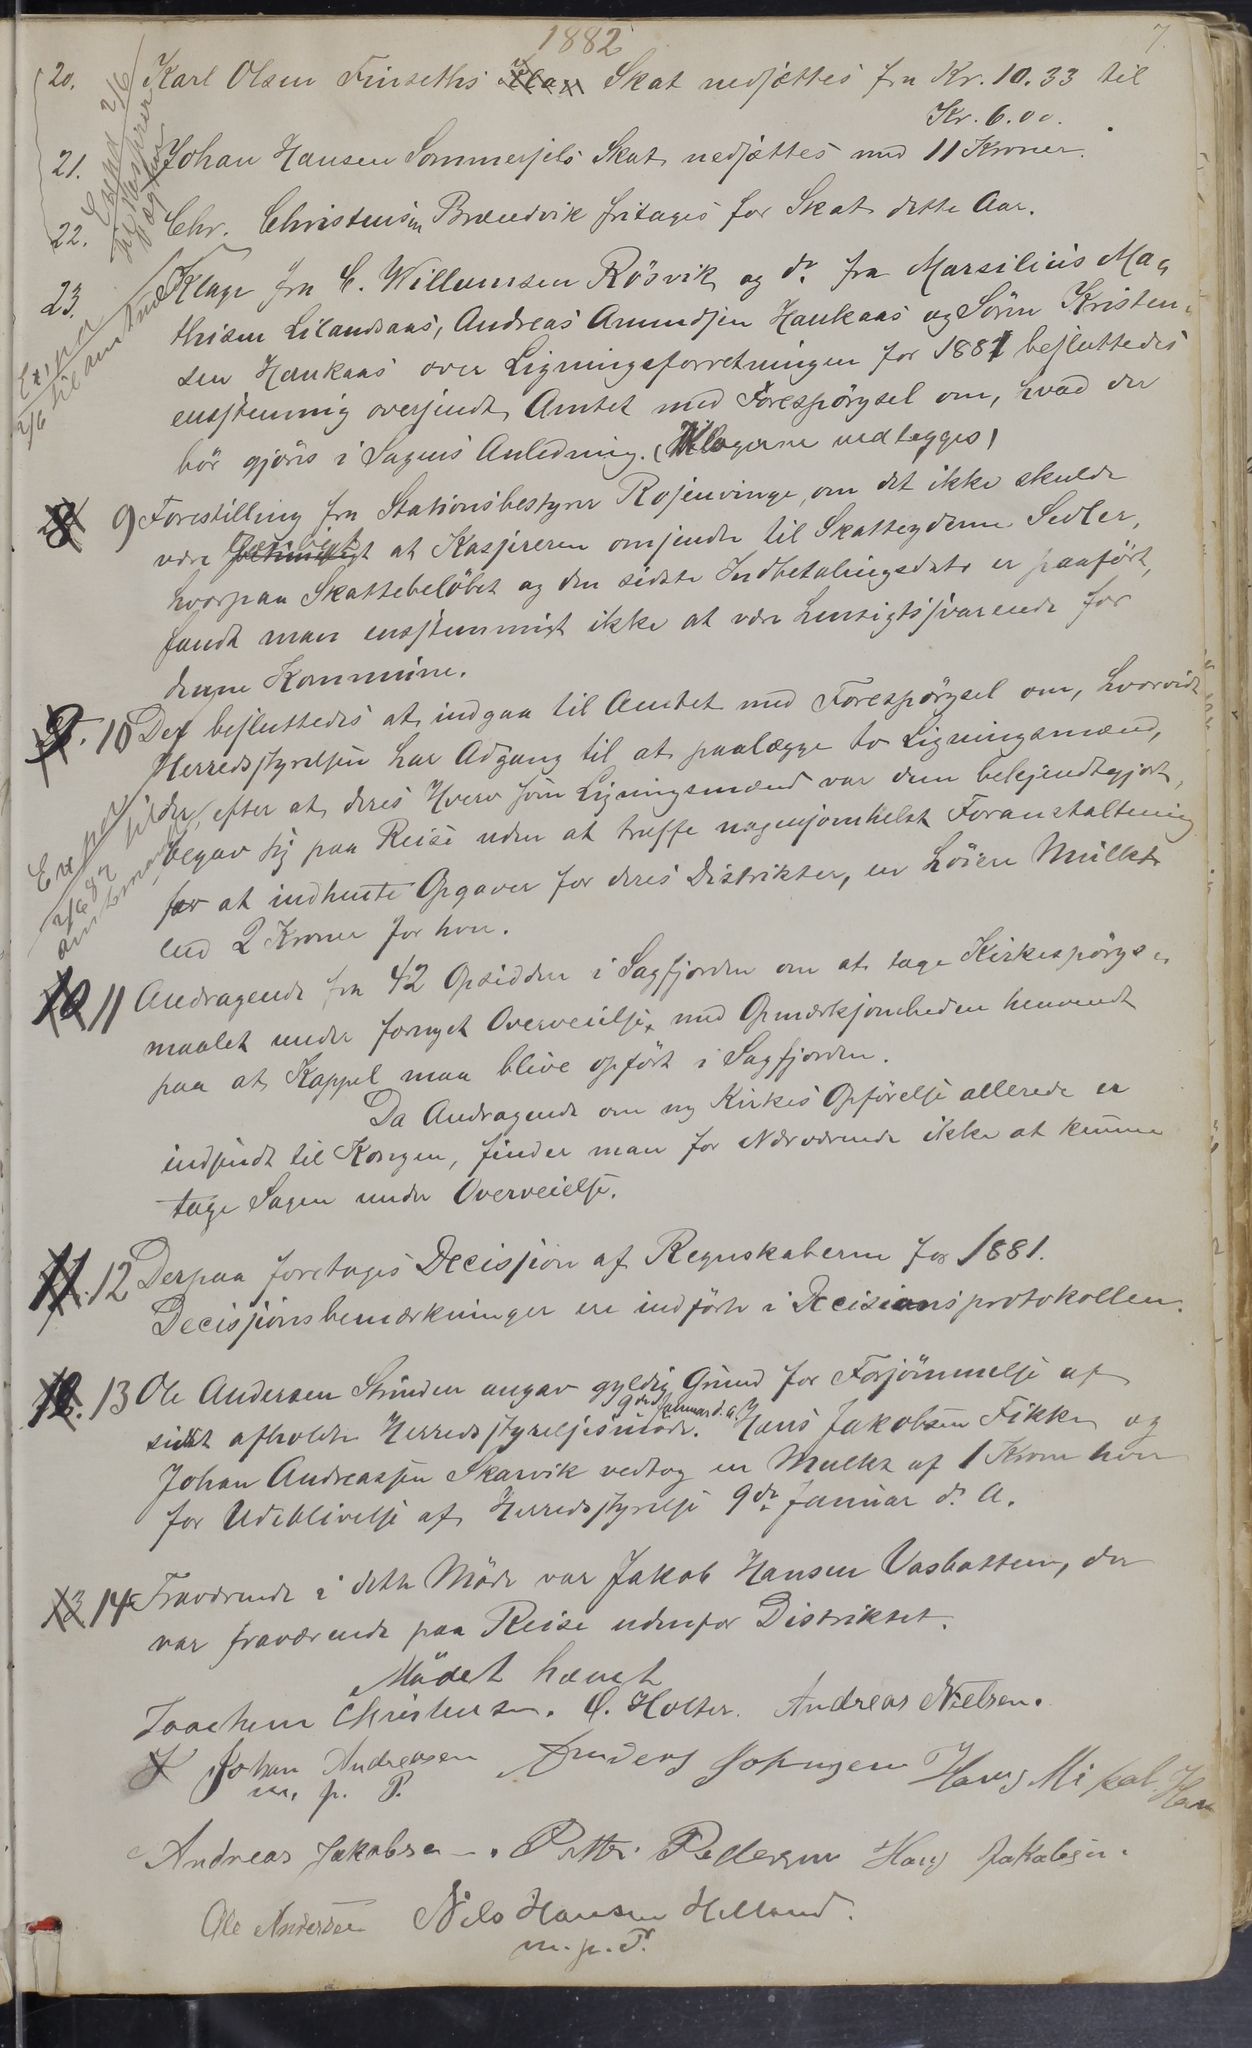 1882
7.
20. Karl Olsen Finseths Skat nedsættes fra Kr. 10.33 til
Kr. 6.00.
21. Johan Hansen Sommersels Skat nedsættes med 11 Kroner.
22. Chr. Christensen Brændvik fritages for Skat dette Aar.
Exped 2/6
til Kasserer
og
23. Klage fra C. Willumsen Rösvik og do. fra Marsilius Ma-
thisen Lilandsaas, Andreas Amundsen Haukaas og Sören Kristen-
sen Haukaas over Ligningsforretningen for 1881 besluttedes
enstemmig oversendt Amtet med Forespörgsel om, hvad der
bör gjöres i Sagens Anledning. (Klagerne vedlegges)
2/6 til amtmd
8 9 Forestilling fra Stationsbestyrer Rosenvinge, om det ikke skulde
være at Kassereren omsendte til Skatteyderne Sedler,
hvorpaa Skattebelöbet og den sidste Indbetalingsdato er paafört,
fandt man enstemmigt ikke at være hensigtssvarende for
denne Kommune.
9. 10 Det besluttedes at indgaa til Amtet med Forespörgsel om, hvorvidt
Herredsstyrelsen har Adgang til at paalægge to Ligningsmænd,
der, efter at deres Hverv som Ligningsmænd var dem bekjendtgjort,
begav sig paa Reise uden at træffe nogensomhelst Foranstaltning
for at indhente Opgaver for deres Distrikter, en höiere Mulkt
end 2 Kroner for hver.
2/6 82 til
amtmand
10 11 Andragende fra 42 Opsiddere i Sagfjorden om at tage Kirkespörgs-
maalet under fornyet Overveielse, med Opmærksomheden henvendt
paa at Kappel maa blive opfört i Sagfjorden.
Da Andragende om ny Kirkes Opförelse allerede er
indsendt til Kongen, finder man for Nærværende ikke at kunne
tage Sagen under Overveielse.
11. 12 Derpaa foretages Decission af Regnskaberne for 1881.
Decissionsbemærkninger ere indförte i Decisionsprotokollen.
12. 13 Ole Andersen Strinden angav gyldig Grund for Forsömmelse af
9de Januar d. A.
sidst afholdte Herredsstyrelsesmöde. Hans Jakobsen Fikke og
Johan Andreassen Skarvik vedtog en Mulkt af 1 Krone hver
for Udeblivelse af Herredsstyrelse 9de Januar d. A.
13 14 Fraværende i dette Möde var Jakob Hansen Vasbatten, der
var fraværende paa Reise udenfor Distriktet.
Mödet hævet
Joachim Christensen. O. Holter. Andreas Nielsen.
Johan Andreasen Anders Johnsen Hans Mikal Han
m. p. P.
Andreas Jakobsen. Petter Pedersen Hans Jakobsen.
Ole Andersen Nils Hansen Helland.
m. p. P.